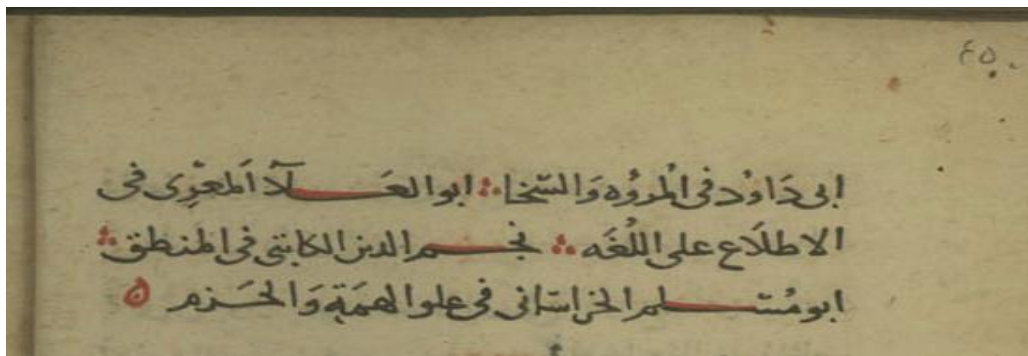 ٤٥٠
ابى دَاوُد فى المُروُه وَالسَّخا ∴ ابو العَلآ المَعرِّى فى
الاطلَاع على اللُغَه ∴ نجم الدين الكاتبى فى المنطق ∴
ابو مُسلم الخراسَانى فى علو الهمَّة وَالحَزم ۞